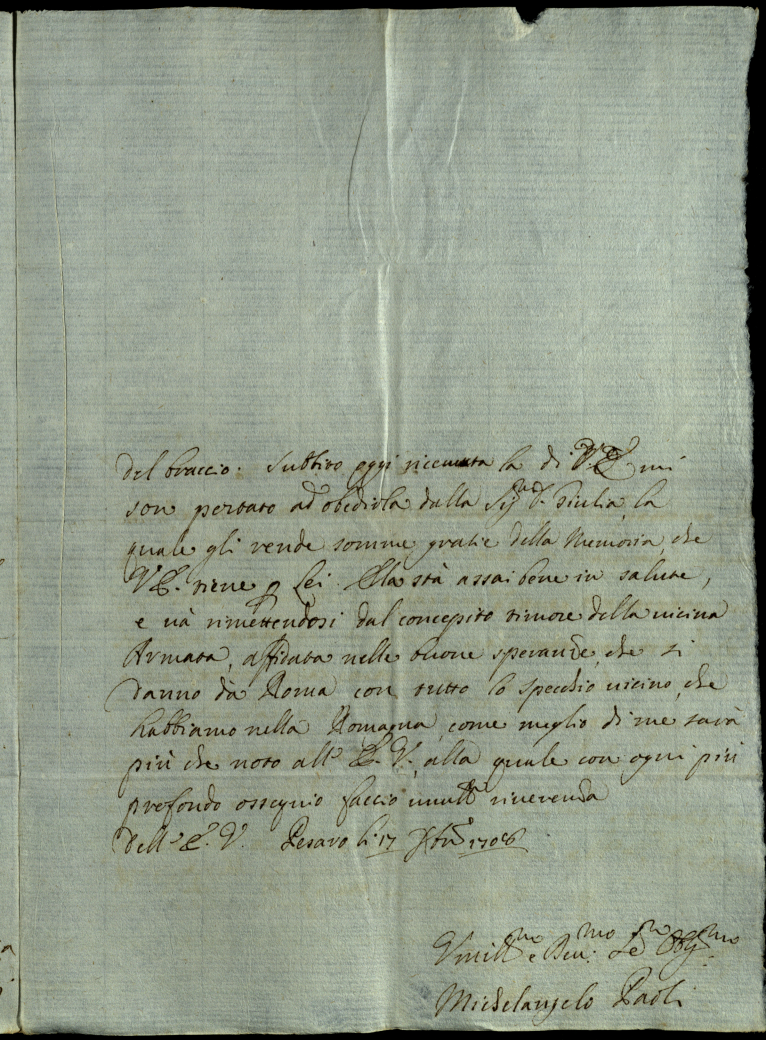 del braccio. Subbito oggi riceuuta la di V.E. mi
son portato ad obedirla dalla Sig.ra D. Giulia, la
quale gli rende somme gratie della Memoria, che
V.E. tiene p Lei. Ella stà assai bene in salute,
e uà rimettendosi dal concepito timore della uicina
Armata, affidata nelle buone speranze, che si
danno dà Roma con tutto lo specchio uicino, che
habbiamo nella Romagna, come meglio di me sarà
più che noto all' E.V., alla quale con ogni più
profondo ossequio faccio umilma riuerenza
Dell' E.V. Pesaro li 17 1708
Vmilmo e Deu:mo Se Obgmo
Michelangelo Paoli